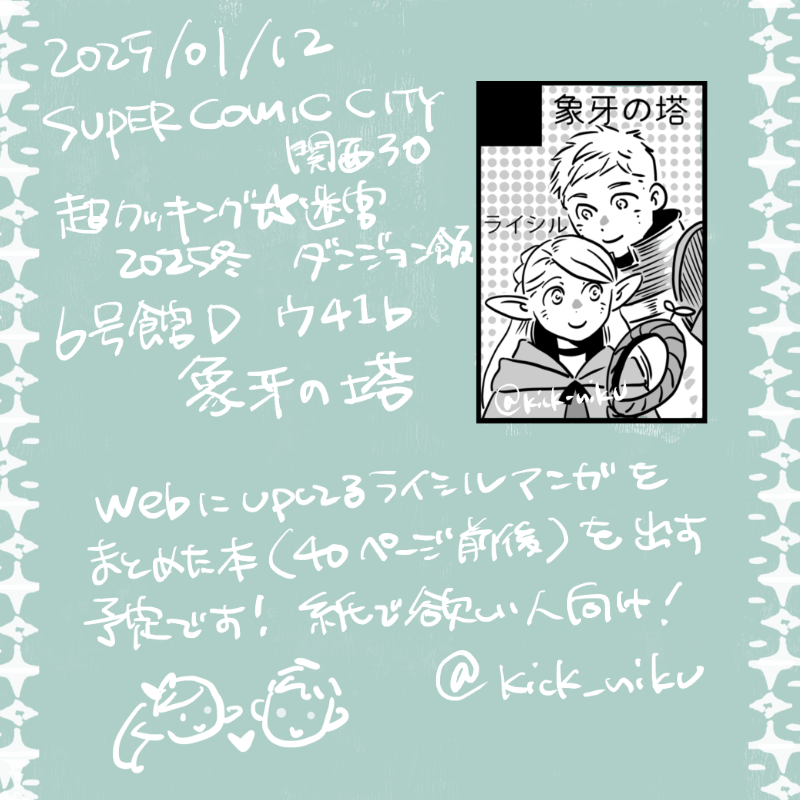 2025/01/12
SUPER COMIC CITY
関西30
超クッキング☆迷宮
2025冬 ダンジョン飯
6号館D ウ41b
象牙の塔
象牙の塔
ライシル
@kick_niku
Webにupしてるライシルマンガを
まとめた本(40ページ前後)を出す
予定です! 紙で欲しい人向け!
@kick_niku